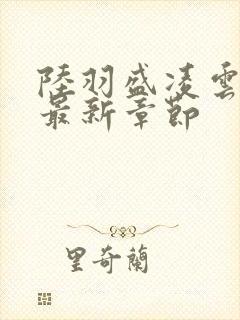 陸羽盛凌雲
最新章節
里奇蘭